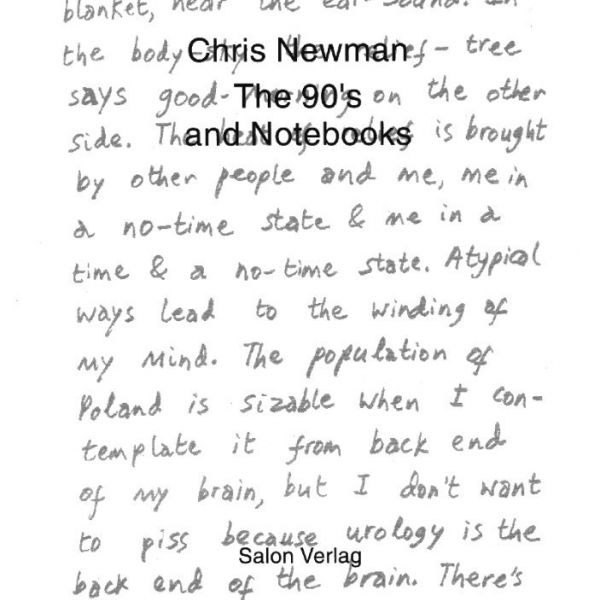 blanket, near the ear-sound. In
the body-sky the relief-tree
Chris Newman
says good- on the other
The 90's
side. The of is brought
and Notebooks
by other people and me, me in
a no-time state & me in a
time & a no-time state. Atypical
ways lead to the winding of
my mind. The population of
Poland is sizable when I con-
template it from back end
of my brain, but I don't want
to piss because urology is the
Salon Verlag
back end of the brain. There's